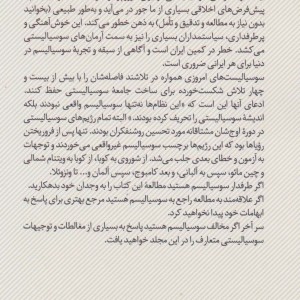 پیش‌فرض‌های اخلاقی بسیاری از ما جور در می‌آید و به‌طور طبیعی (بخوانید
بدون نیاز به مطالعه و تدقیق و تأمل) به ذهن خطور می‌کند. این خوش‌آهنگی و
پرطرفداری، سیاستمداران بسیاری را نیز به سمت آرمان‌های سوسیالیستی
می‌کشد. خطر در کمین ایران است و آگاهی از سبقه و تجربهٔ سوسیالیسم در
دنیا برای هر ایرانی ضروری است.
سوسیالیست‌های امروزی همواره در تلاشند فاصله‌شان را با بیش از بیست و
چهار تلاش شکست‌خورده برای ساخت جامعهٔ سوسیالیستی حفظ کنند.
ادعای آنها این است که «این نظام‌ها نه‌تنها سوسیالیسم واقعی نبودند بلکه
اندیشهٔ سوسیالیستی را تحریف کرده بودند.» البته تمام رژیم‌های سوسیالیستی
در دورهٔ اوج‌شان مشتاقانه مورد تحسین روشنفکران بودند. تنها پس از فروریختن
رؤیاها بود که این رژیم‌ها برچسب سوسیالیسم غیرواقعی می‌خوردند و توجهات
به آزمون و خطای بعدی جلب می‌شد. از شوروی به کوبا، از کوبا به ویتنام شمالی
و چین مائو، سپس به آلبانی، و بعد کامبوج، سپس آلمان و... تا ونزوئلا.
اگر طرفدار سوسیالیسم هستید مطالعهٔ این کتاب را به وجدان خود بدهکارید.
اگر علاقه‌مند به مطالعه راجع به سوسیالیسم هستید مرجع بهتری برای پاسخ به
ابهامات خود پیدا نخواهید کرد.
سر آخر اگر مخالف سوسیالیسم هستید پاسخ به بسیاری از مغالطات و توجیهات
سوسیالیستی متعارف را در این مجلد خواهید یافت.